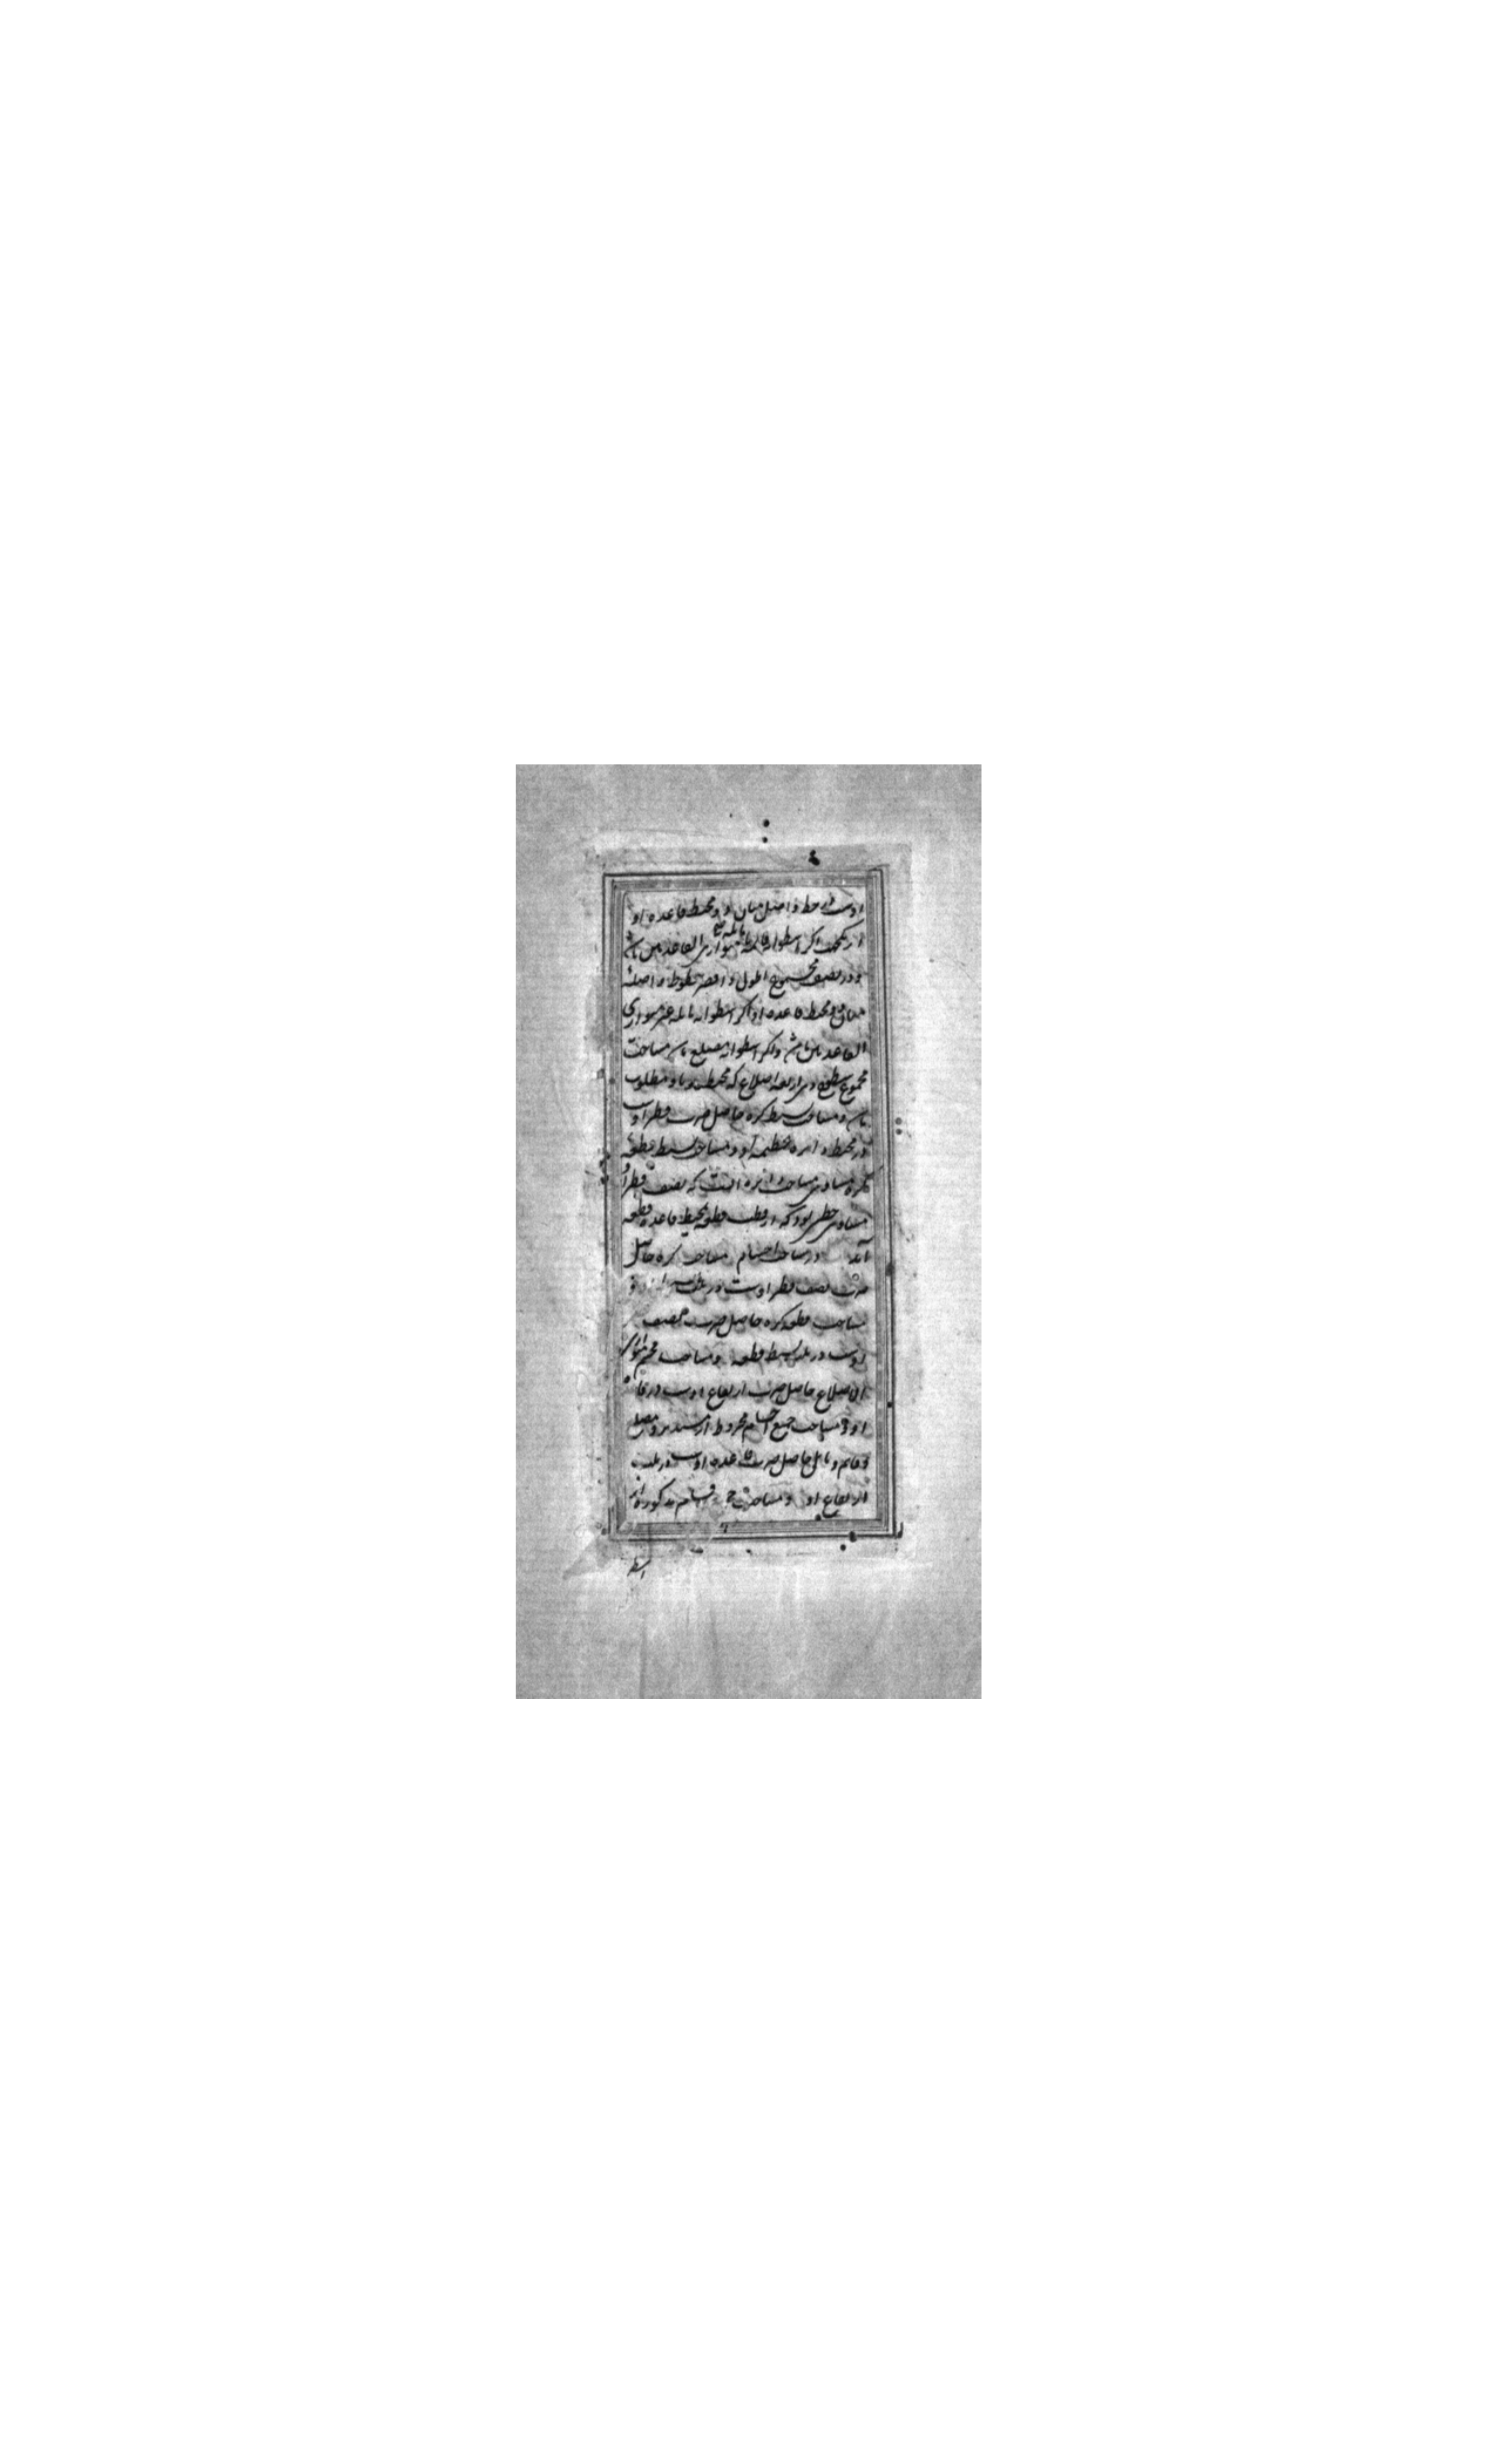 اوست در خط واصل میان او و محیط قاعده او
از یکجهت اگر اسطوانه مایله متوازی القاعدتین باشد
و در نصف مجموع اطول و اقصر خطوط واصله
میان دو محیط قاعده او اگر اسطوانه مایله غیر متوازی
القاعدتین باشد و اگر اسطوانه مضلع باشد مساحت
مجموع سطوح ذی اربعه اضلاع که محیطند باو مطلوب
باشد و مساحت بسیط کره حاصل ضرب قطر اوست
در محیط دایره عظیمه او و مساحت بسیط قطعه
کره مساوی مساحت دایره است که نصف قطر او
مساوی خطی بود که از قطب قطعه بمحیط قاعده قطعه
آید در مساحت اجسام مساحت کره حاصل
ضرب نصف قطر اوست در ثلث
مساحت قطعه کره حاصل ضرب نصف
اوست در ثلث بسیط قطعه و مساحت مجسم متوازی
الاضلاع حاصل ضرب ارتفاع اوست در قاعده
او و مساحت جمیع اجسام مخروط از مستدیر و مضلع
و قایم و مایل حاصل ضرب قاعده اوست در ثلث
ارتفاع او و مساحت اقسام مذکوره از